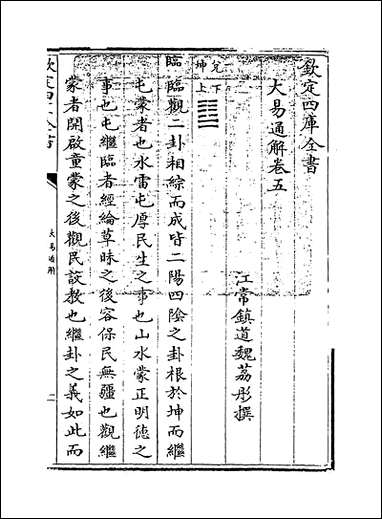 欽定四庫全書
大易通解卷五
江常鎮道魏荔彤撰
兌下
坤上
臨臨觀二卦相綜而成皆二陽四陰之卦根於坤而繼
屯蒙者也水雷屯厚民生之事也山水蒙正明德之
事也屯繼臨者經綸草昧之後容保民無疆也觀繼
蒙者開啟童蒙之後觀民設教也繼卦之義如此而
欽定四庫全書
大易通解